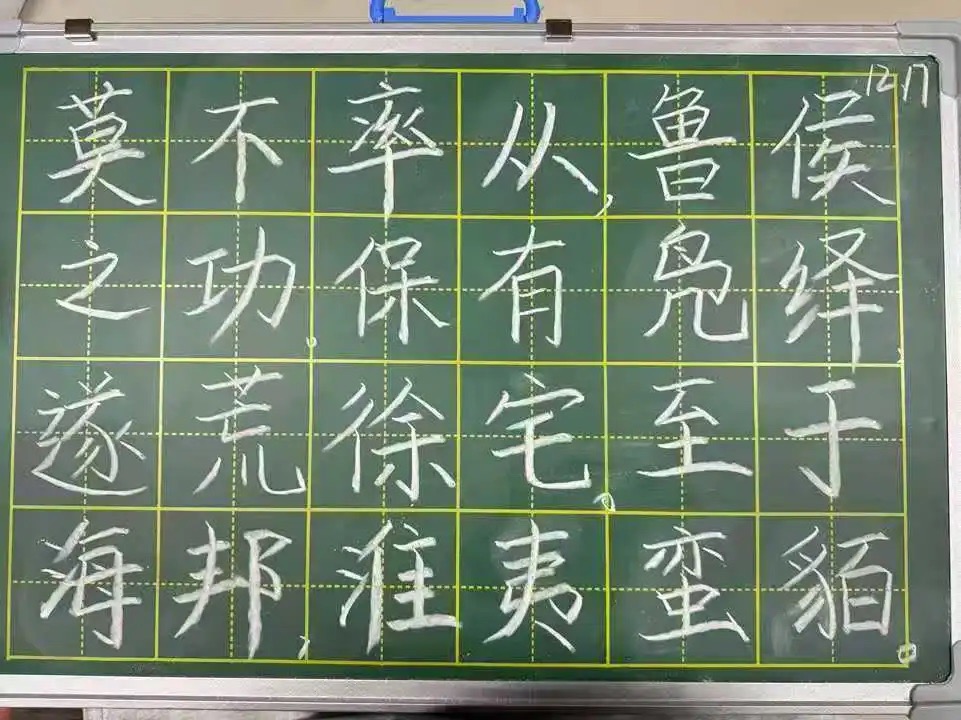 12.17
莫不率从,鲁侯
之功。保有凫绎,
遂荒徐宅。至于
海邦,淮夷蛮貊。